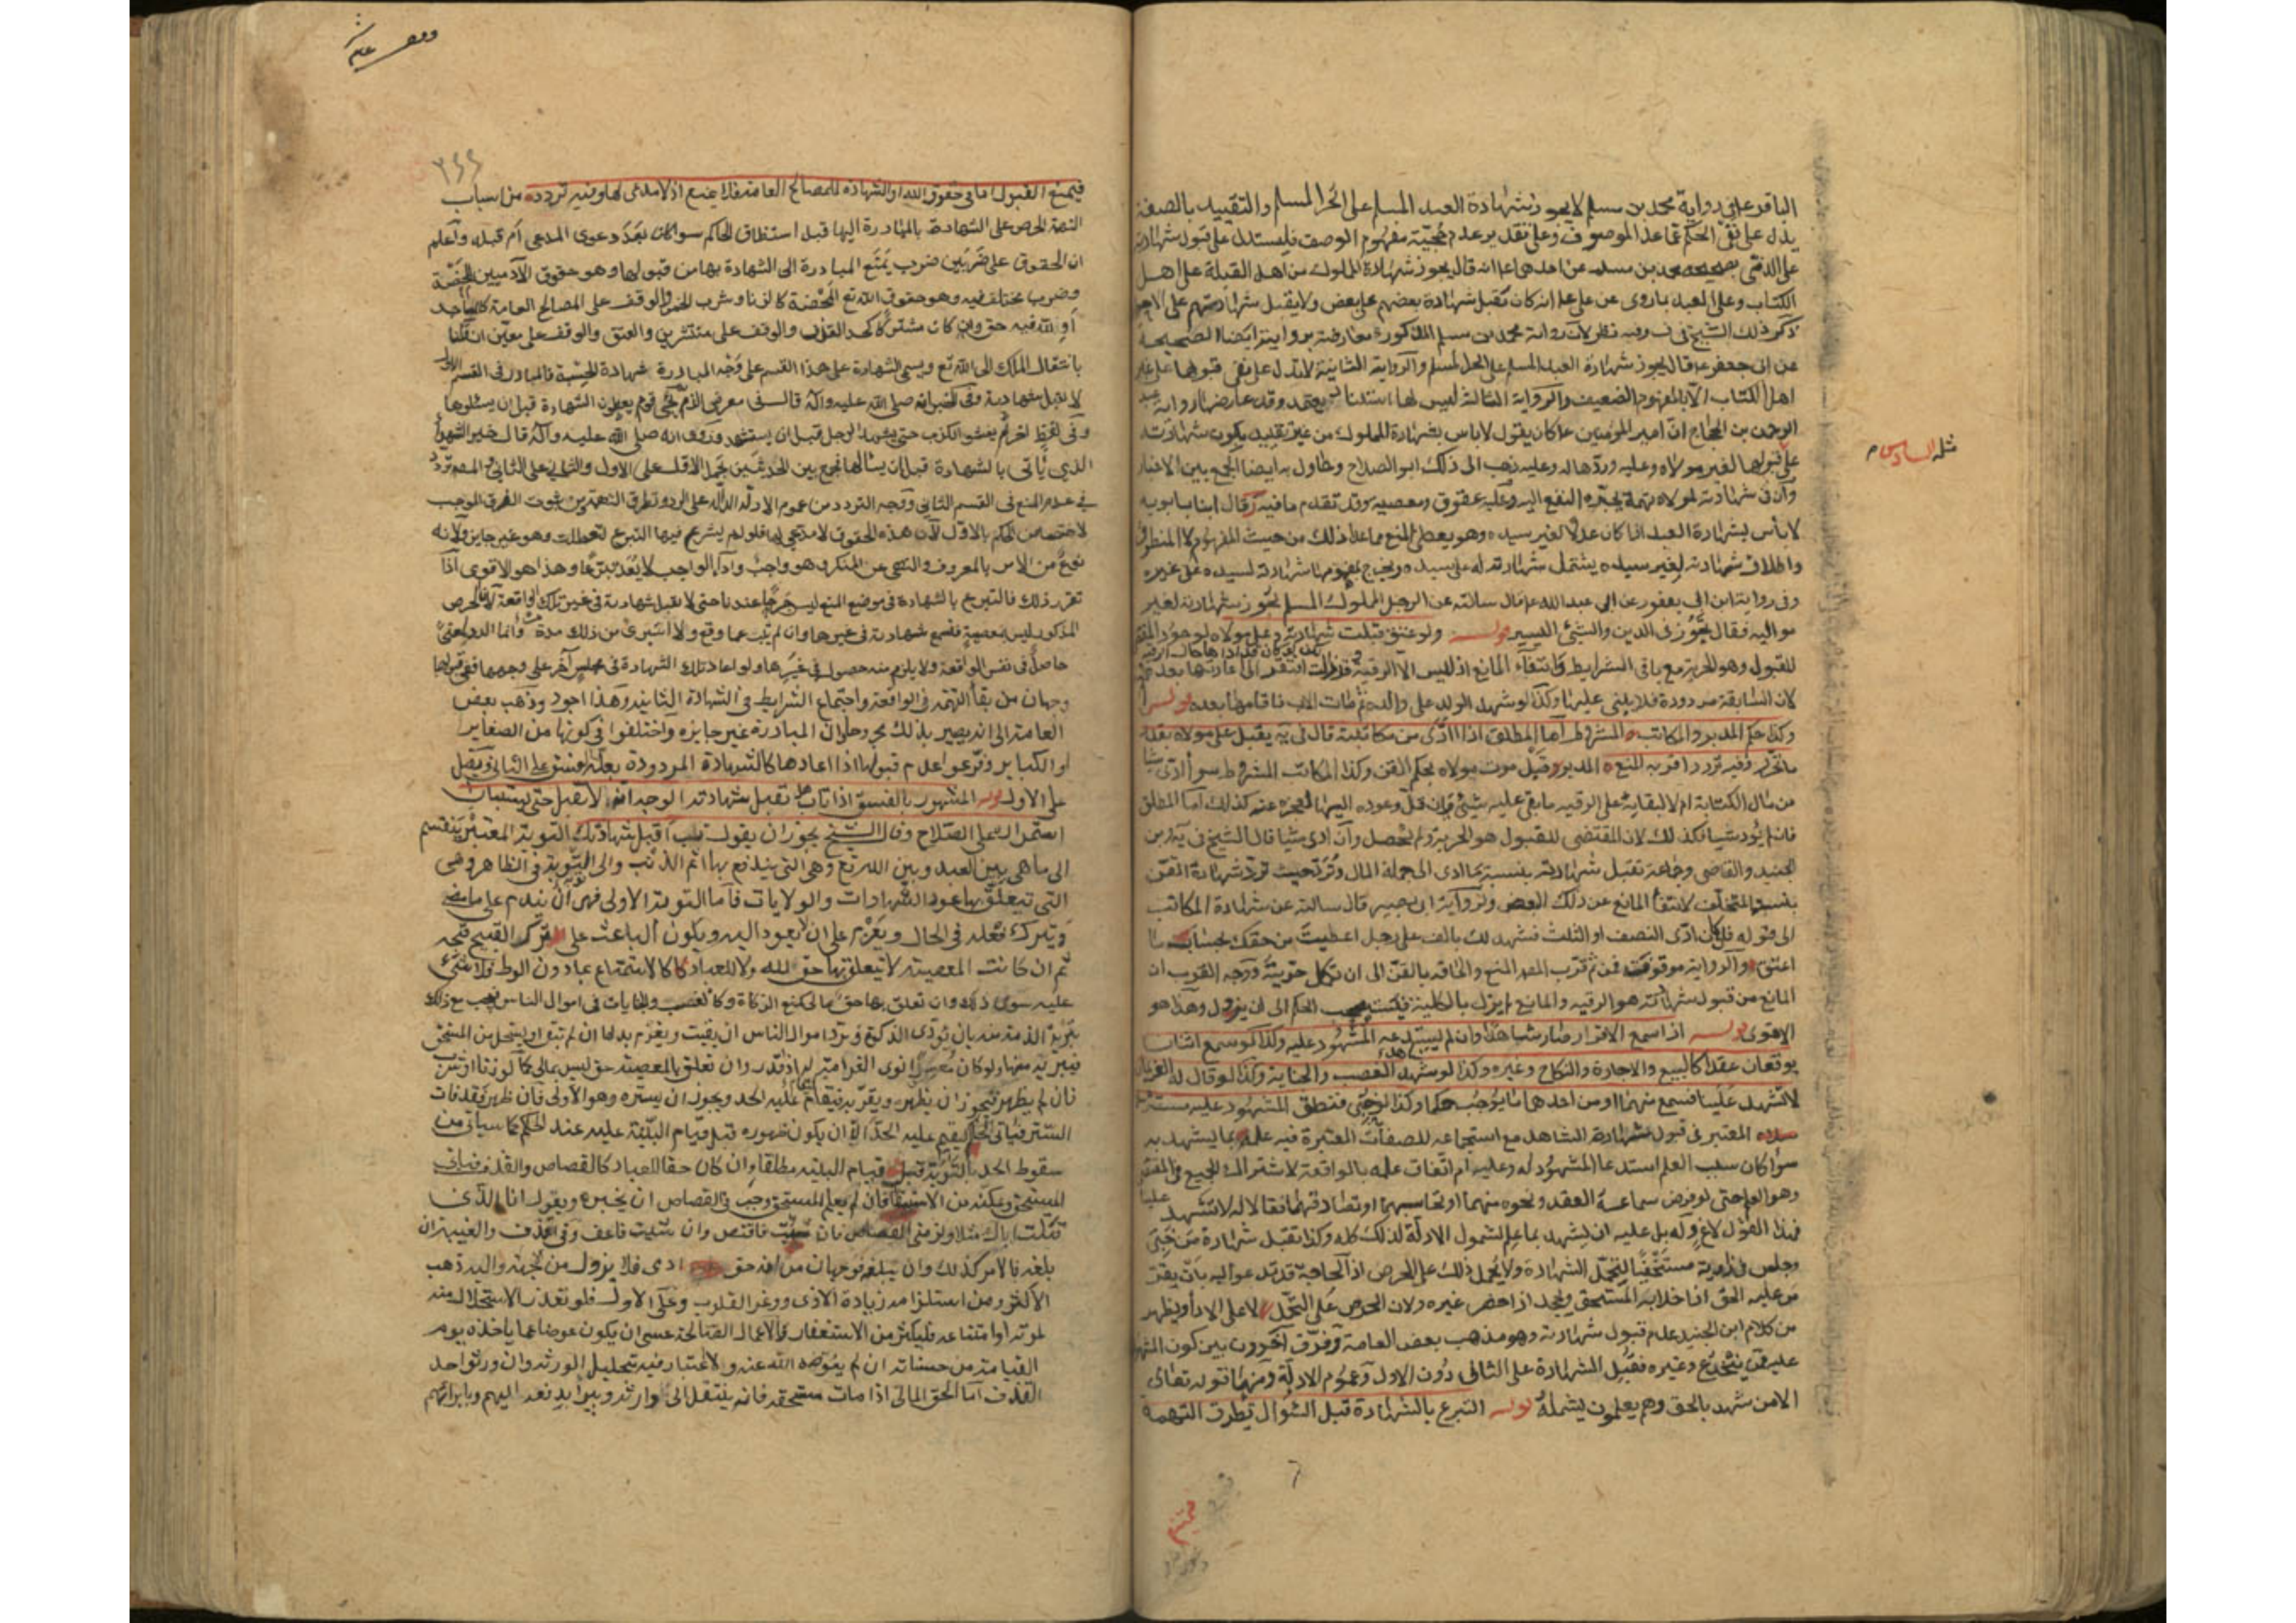 الباقر ع في رواية محمد بن مسلم لا يجوز شهادة العبد المسلم على الحر المسلم والتقييد بالصفة
يدل على نفي الحكم عما عدا الموصوف وعلى تقدير عدم حجية مفهوم الوصف فليستدل على قبول شهادته
على الذمي بصحيحة محمد بن مسلم عن احدهما ع انه قال يجوز شهادة المملوك من اهل القبلة على اهل
الكتاب وعلى العبد بما روى عن علي ع انه كان يقبل شهادة بعضهم على بعض ولا يقبل شهادتهم على الاحرار
ذكر ذلك الشيخ في وفيه نظر لان رواية محمد بن مسلم المذكورة معارضة بروايته ايضا الصحيحة
عن ابي جعفر ع قال يجوز شهادة العبد المسلم على الحر المسلم والرواية الثانية لا تدل على نفي قبولها على غير
اهل الكتاب الا بالمفهوم الضعيف والرواية الثالثة ليس لها اسناد يعتمد وقد عارضها رواية عبد
الرحمن بن الحجاج ان امير المؤمنين ع كان يقول لا باس بشهادة المملوك من غير تقييد يكون شهادته
على قبولها لغير مولاه وعليه وردها له وعليه ذهب الى ذلك ابو الصلاح وحاول به ايضا الجمع بين الاخبار
وان في شهادته لمولاه تهمة بجره النفع اليه وعليه عقوق ومعصية وقد تقدم ما فيه وقال ابنا بابويه
لا باس بشهادة العبد اذا كان عدلا لغير سيده وهو يعطي المنع مما عدا ذلك من حيث المفهوم لا المنطوق
واطلاق شهادته لغير سيده يشتمل شهادته له على سيده ويخرج بمفهومها شهادته لسيده على غيره
وفي رواية ابن ابي يعفور عن ابي عبد الله ع قال سالته عن الرجل المملوك المسلم تجوز شهادته لغير
مواليه فقال تجوز في الدين والشيء اليسير قوله ولو عتق قبلت شهادته على مولاه لوجود المقتضي
للقبول وهو الحرية مع باقي الشرايط وانتفاء المانع اذ ليس الا الرقية وقد زالت افتقر الى اعادتها بعده
لان السابقة مردودة فلا يبنى عليها وكذا لو شهد الولد على والده ثم مات الاب فاقامها بعده قوله
وكذا حكم المدبر والمكاتب المشروط اما المطلق اذا ادى من مكاتبته قال في يه يقبل على مولاه بقدر
ما تحرر وفيه تردد اقربه المنع المدبر قبل موت مولاه بحكم القن وكذا المكاتب المشروط سواء ادى شيئا
من مال الكتابة ام لا لبقائه على الرقية ما بقي عليه شيء وان قل وعوده اليها بالعجز عنه كذلك اما المطلق
فان لم يؤد شيئا فكذلك لان المقتضي للقبول هو الحرية ولم تحصل وان ادى شيئا قال الشيخ في يه وابن
الجنيد والقاضي وجماعة تقبل شهادته بنسبة ما ادى الى جملة المال وترد حيث ترد شهادة القن
بنسبة المتخلف لانتفاء المانع عن ذلك البعض ولرواية ابي بصير قال سالته عن شهادة المكاتب
الى قوله فان كان ادى النصف او الثلث فشهد لك بالف على رجل اعطيت من حقك بحساب ما
اعتق والرواية موقوفة فمن ثم قرب المص المنع والحاقه بالقن الى ان تكمل حريته ووجه القرب ان
المانع من قبول شهادته هو الرقية والمانع لم يزل بالكلية فيستصحب الحكم الى ان يزول وهذا هو
الاقوى قوله اذا سمع الاقرار صار شاهدا وان لم يستدعه المشهود عليه وكذا لو سمع اثنان
يوقعان عقدا كالبيع والاجارة والنكاح وغيره وكذا لو شهد الغصب والجناية وكذا لو قال له الغريمان
لا تشهد علينا فسمع منهما او من احدهما ما يوجب حكما وكذا لو خبي فنطق المشهود عليه مسترسلا
المعتبر في قبول شهادة الشاهد مع استجماعه للصفات المعتبرة فيه علمه بما يشهد به
سواء كان سبب العلم استدعاء المشهود له وعليه ام اتفاق علمه بالواقعة لاشتراك الجميع في المقتضي
وهو العلم حتى لو فرض سماعه العقد ونحوه منهما او تحاسبهما او تصادقهما فقالا له لا تشهد علينا
فهذا القول لاغ وله بل عليه ان يشهد بما علم لشمول الادلة لذلك كله وكذا تقبل شهادة من خبي
وجلس في زاوية مستخفيا لتحمل الشهادة ولا يحمل ذلك على الحرص اذ الحاجة قد تدعو اليه بان يقر
من عليه الحق اذا خلا به المستحق ويجحد اذا حضر غيره ولان الحرص على التحمل لا على الاداء ويظهر
من كلام ابن الجنيد عدم قبول شهادته وهو مذهب بعض العامة وفرق آخرون بين كون المشهود
عليه ممن ينخدع وغيره فتقبل الشهادة على الثاني دون الاول وعموم الادلة ومنها قوله تعالى
الا من شهد بالحق وهم يعلمون يشمله قوله التبرع بالشهادة قبل السؤال يطرق التهمة
مثله السادس م
فيمنع القبول اما في حقوق الله او الشهادة للمصالح العامة فلا يمنع اذ لا مدعي لها وفيه تردد من اسباب
التهمة الحرص على الشهادة بالمبادرة اليها قبل استنطاق الحاكم سواء كان بعد دعوى المدعي ام قبله واعلم
ان الحقوق على ضربين ضرب يمنع المبادرة الى الشهادة بها من قبولها وهو حقوق الآدميين المحضة
وضرب مختلف فيه وهو حقوق الله تع المحضة كالزنا وشرب الخمر والوقف على المصالح العامة كالمساجد
او لله فيه حق وان كان مشتركا كحد القذف والوقف على منتشرين والعتق والوقف على معين ان قلنا
بانتقال الملك الى الله تع ويسمى الشهادة على هذا القسم على وجه المبادرة شهادة الحسبة فالمبادر في القسم الاول
لا تقبل شهادته وفي الخبر انه صلى الله عليه وآله قال في معرض الذم ثم يجيء قوم يعطون الشهادة قبل ان يسئلوها
وفي لفظ آخر ثم يفشو الكذب حتى يشهد الرجل قبل ان يستشهد وروى انه صلى الله عليه وآله قال خير الشهود
الذي ياتي بالشهادة قبل ان يسالها فجمع بين الحديثين بحمل الاول على الاول والثاني على الثاني والمص تردد
في عدم المنع في القسم الثاني ووجه التردد من عموم الادلة الدالة على الرد وتطرق التهمة ومن ثبوت الفرق الموجب
لاختصاص الحكم بالاول لان هذه الحقوق لا مدعي لها فلو لم يشرع فيها التبرع لتعطلت وهو غير جايز ولانه
نوع من الامر بالمعروف والنهي عن المنكر وهو واجب واداء الواجب لا يعد تبرعا وهذا هو الاقوى اذا
تقرر ذلك فالتبرع بالشهادة في موضع المنع ليس جرحا عندنا حتى لا تقبل شهادته في غير تلك الواقعة لان الحرص
المذكور ليس بمعصية فتسمع شهادته في غيرها وان لم يتب عما وقع ولا استبرئ من ذلك مدة وانما الرد
حاصل في نفس الواقعة ولا يلزم منه حصوله في غيرها ولو اعاد تلك الشهادة في مجلس آخر على وجهها ففي قبولها
وجهان من بقاء التهمة في الواقعة واجتماع الشرايط في الشهادة الثانية وهذا اجود وذهب بعض
العامة الى انه يصير بذلك مجروحا لان المبادرة غير جايزة واختلفوا في كونها من الصغاير
او الكباير وفرعوا عدم قبولها اذا اعادها كالشهادة المردودة بعلة الفسق على الثاني وتقبل
على الاول قوله المشهور بالفسق اذا تاب هل تقبل شهادته الوجه انه لا تقبل حتى يستبان
استمراره على الصلاح وقال الشيخ يجوز ان يقول تب اقبل شهادتك التوبة المعتبرة تنقسم
الى ما هي بين العبد وبين الله تع وهي التي يندفع بها اثم الذنب والى التوبة في الظاهر وهي
التي تتعلق بها عود الشهادات والولايات فاما التوبة الاولى فهي ان يندم على ما مضى
ويترك فعله في الحال ويعزم على ان لا يعود اليه ويكون الباعث على الترك القبيح قبحه
ثم ان كانت المعصية لا تتعلق بها حق لله ولا للعباد كالاستمتاع بما دون الوطء فلا شيء
عليه سوى ذلك وان تعلق بها حق مالي كمنع الزكاة وكالغصب والجنايات في اموال الناس فيجب مع ذلك
تبرئة الذمة منه بان يؤدي الزكوة ويرد اموال الناس ان بقيت ويغرم بدلها ان لم تبق او يستحل من المستحق
فيبرئه منها ولو كان معسرا نوى الغرامة له اذا قدر وان تعلق بالمعصية حق ليس بمالي كما لو زنا او شرب
فان لم يظهر فيجوز ان يظهره ويقر به فيقام عليه الحد ويجوز ان يستره وهو الاولى فان ظهر فقد فات
الستر فياتي الحاكم ليقيم عليه الحد الا ان يكون ظهوره قبل قيام البينة عليه عند الحكم كما سياتي من
سقوط الحد بالتوبة قبل قيام البينة مطلقا وان كان حقا للعباد كالقصاص والقذف فياتي
المستحق ويمكنه من الاستيفاء فان لم يعلم المستحق وجب في القصاص ان يخبره ويقول انا الذي
قتلت اباك مثلا ولزمني القصاص فان شئت فاقتص وان شئت فاعف وفي القذف والغيبة ان
بلغه فالامر كذلك وان لم يبلغه فوجهان من انه حق ادمي فلا يزول من جهته واليه ذهب
الاكثر ومن استلزامه زيادة الاذى ووغر القلوب وعلى الاول فلو تعذر الاستحلال منه
لموته او امتناعه فليكثر من الاستغفار والاعمال الصالحة عسى ان يكون عوضا عما ياخذه يوم
القيامة من حسناته ان لم يعوضه الله عنه ولا اعتبار فيه بتحليل الورثة وان ورثوا حد
القذف اما الحق المالي اذا مات مستحقه فانه ينتقل الى وارثه ويبرا بدفعه اليهم وبابرائهم